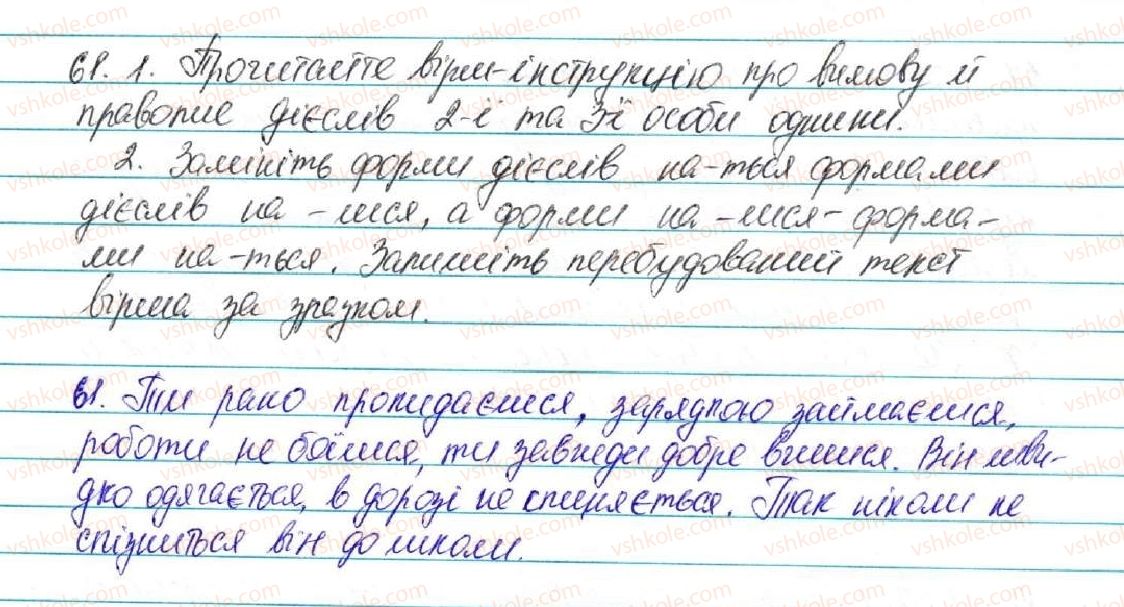 61. 1. Прочитайте вірш-інструкцію про вимову й
правопис дієслів 2-ї та 3ї особи однини.
2. Замініть форми дієслів на -ться формами
дієслів на -шся, а форми на -шся - форма-
ми на -ться. Запишіть перебудований текст
вірша за зразком.
61. Ти рано прокидаєшся, зарядкою займаєшся,
роботи не боїшся, ти завжди добре вчишся. Він шви-
дко одягається, в дорозі не спиняється. Так ніколи не
спізниться він до школи.